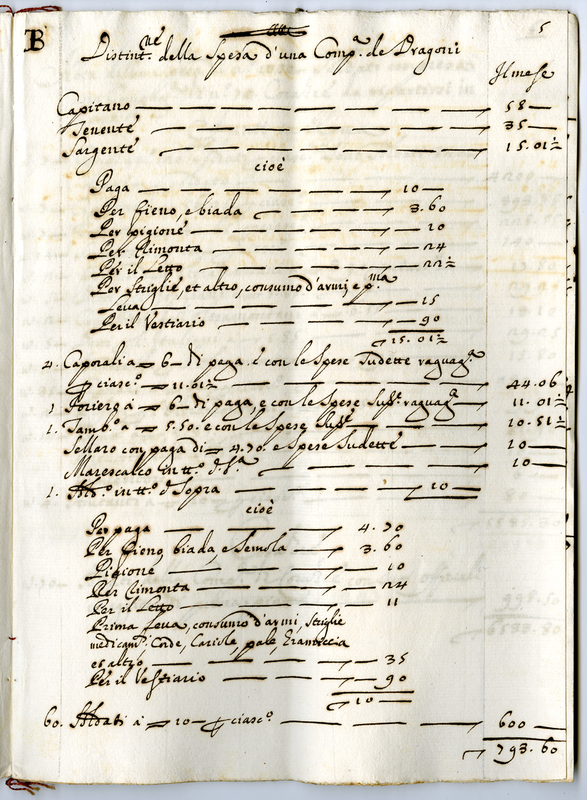 B
5
Distint.ne della Spesa d'una Comp.a de Dragoni
Il mese
Capitano 58
Tenente 35
Sargente 15.01½
cioè
Paga 10
Per fieno, e biada 3.60
Per pigione 10
Per Rimonta 24
Per il Letto 22½
Per Striglie, et altro, consumo d'armi, e p.ma
Leva 15
Per il Vestiario 90
15.01½
4. Caporali a 6 di paga e con le Spese Sudette raguag.o
ciasc.o 11.01½ 44.06
1 Foriero a 6 di paga, e con le Spese Sud.e raguag.o 11.01½
1. Tamb.o a 5.50. e con le Spese Sud.e 10.51½
Sellaro con paga di 4.70. e Spese Sudette 10
Marescalco in tt.o d.S.a 10
1. in tt.o d Sopra 10
cioè
Per paga 4.70
Per fieno, biada, e Semola 3.60
Pigione 10
Per Rimonta 24
Per il Letto 11
Prima Leva, consumo d'armi, Striglie
medicam.i Corde, pale, Gramiccia
et altro 35
Per il Vestiario 90
10
60. a 10 ciasc.o 600
793.60